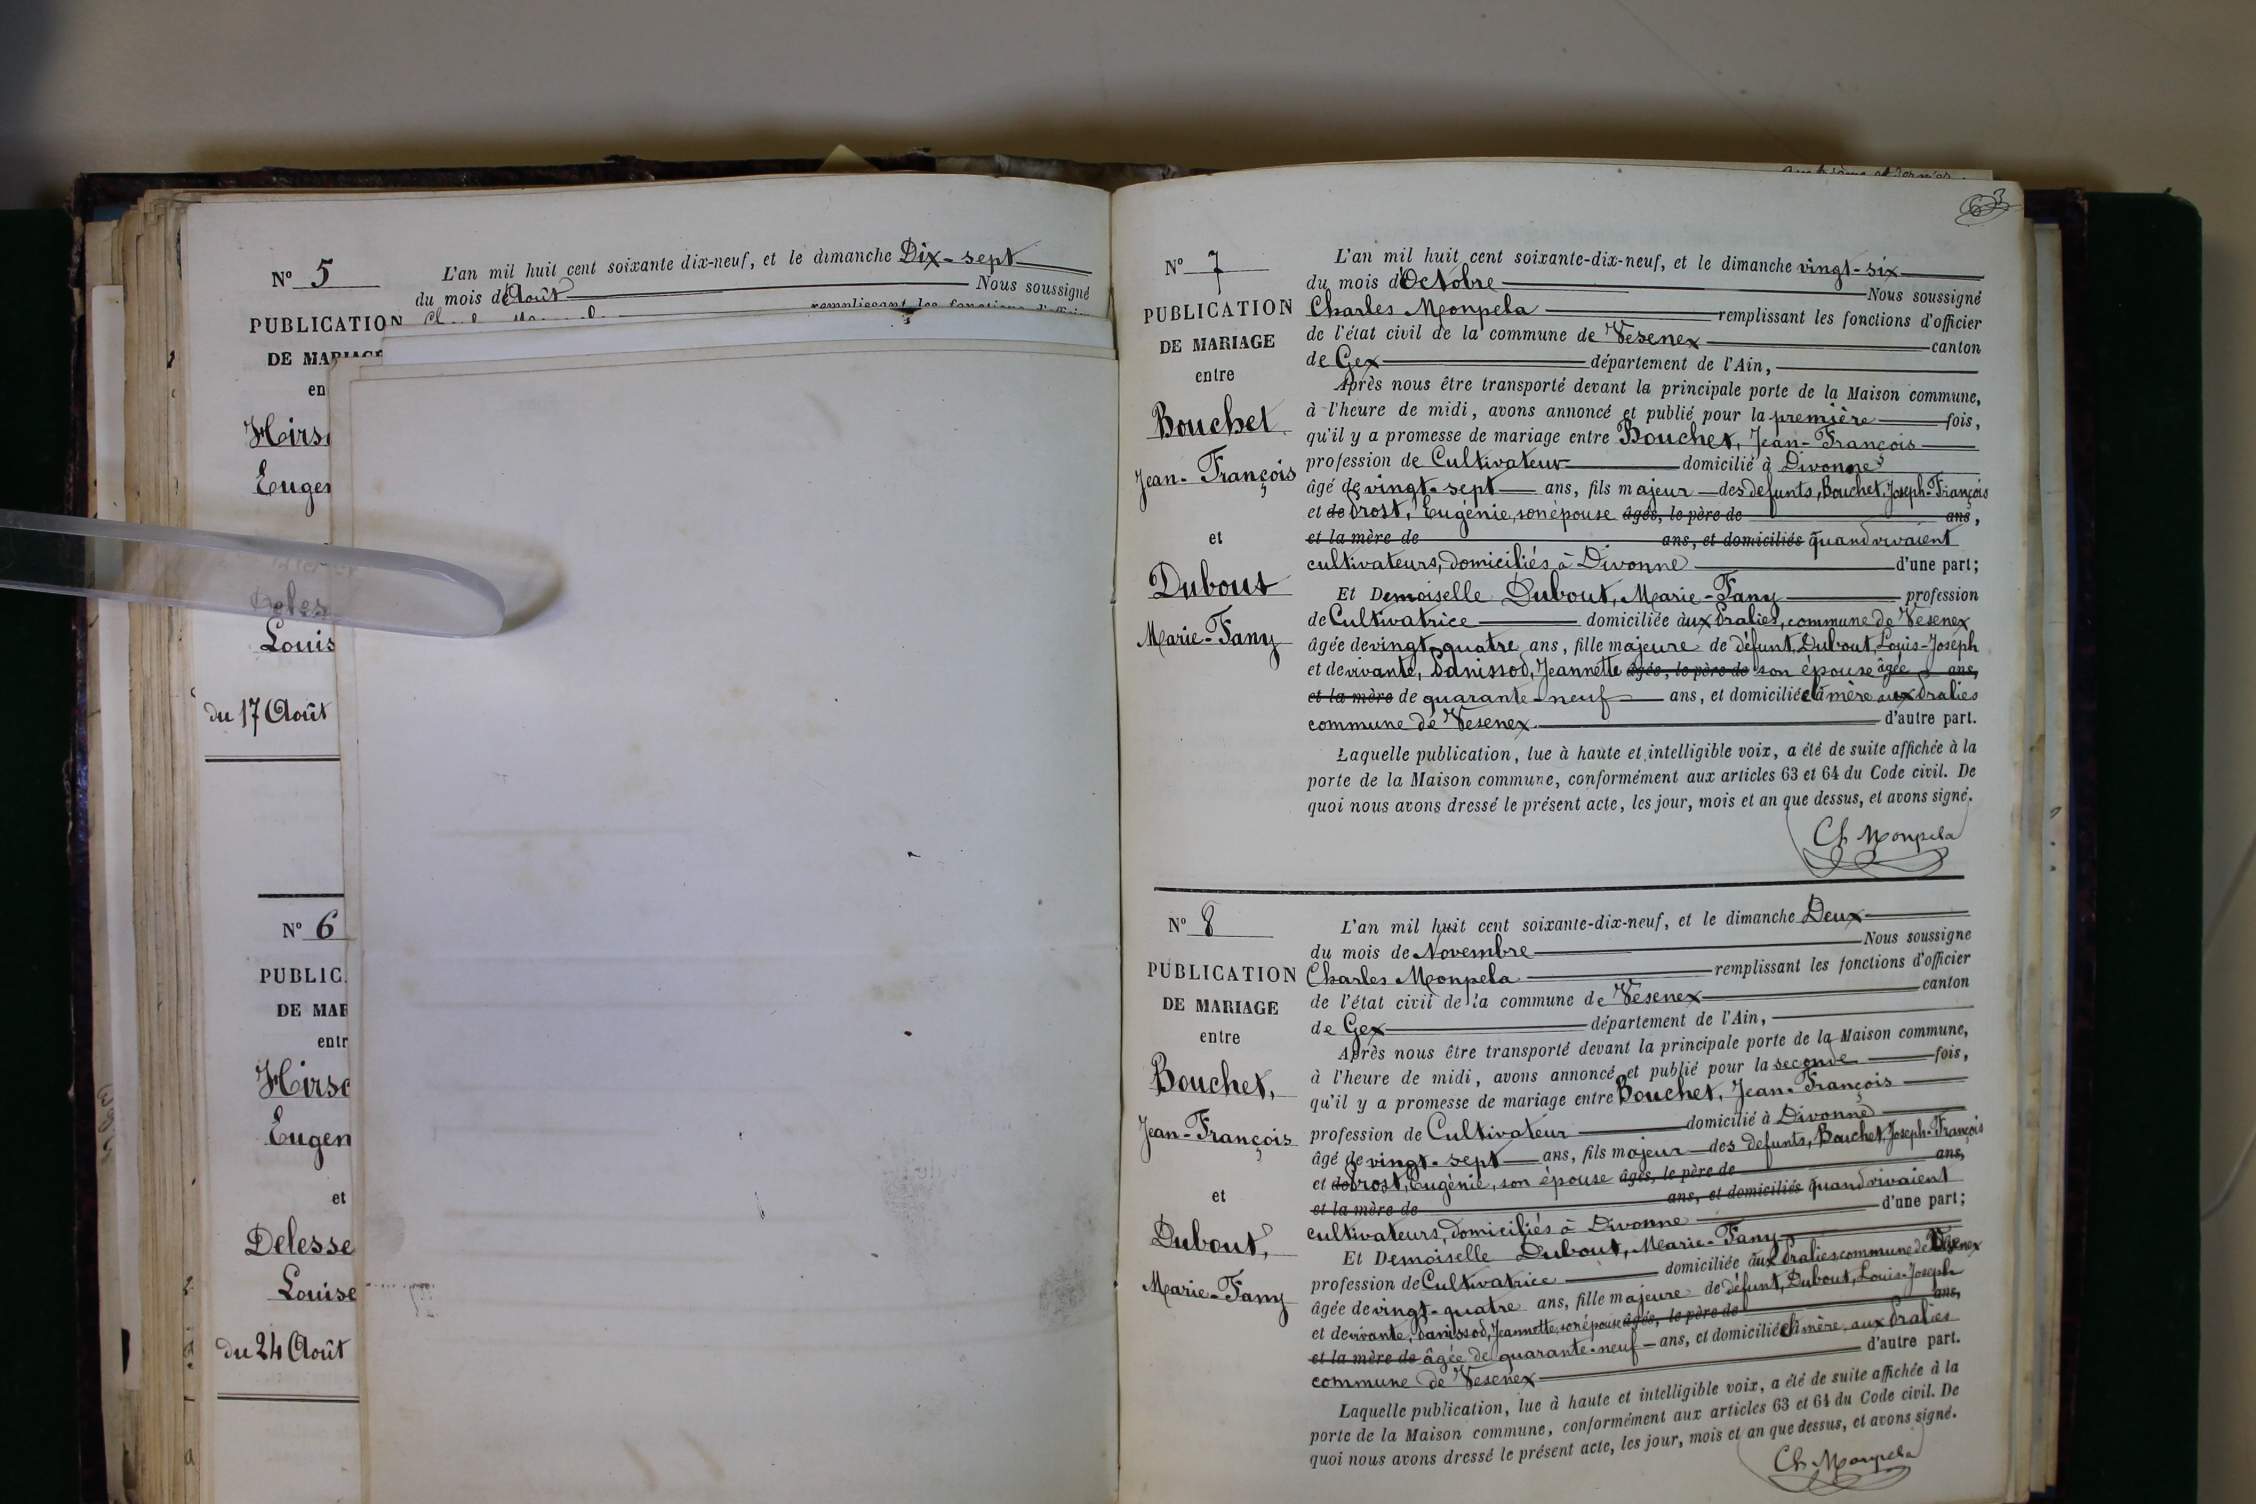 N° 5
PUBLICATION
DE MARIAGE
en
Hirs
Euger
Louis
du 17 Août
L'an mil huit cent soixante dix-neuf, et le dimanche Dix-sept
du mois d'Août Nous soussigné
remplissant les fonctions d'offici
N° 6
PUBLIC
DE MAR
entr
Hirsc
Eugen
et
Delesse
Louise
du 24 Août
63
N° 7
PUBLICATION
DE MARIAGE
entre
Bouchet
Jean-François
et
Dubout
Marie-Fany
L'an mil huit cent soixante-dix-neuf, et le dimanche vingt-six
du mois d'Octobre Nous soussigné
Charles Monpela remplissant les fonctions d'officier
de l'état civil de la commune de Vesenex canton
de Gex département de l'Ain,
Après nous être transporté devant la principale porte de la Maison commune,
à l'heure de midi, avons annoncé et publié pour la première fois,
qu'il y a promesse de mariage entre Bouchet, Jean-François
profession de Cultivateur domicilié à Divonne
âgé de vingt-sept ans, fils majeur des défunts, Bouchet, Joseph-François
et de Drost, Eugénie, son épouse âgés, le père de ans,
et la mère de ans, et domiciliés quand vivaient
cultivateurs, domiciliés à Divonne d'une part;
Et Demoiselle Dubout, Marie-Fany profession
de Cultivatrice domiciliée aux Dralies, commune de Vesenex
âgée de vingt-quatre ans, fille majeure de défunt, Dubout, Louis-Joseph
et de vivante, Panissod, Jeannette âgés, le père de son épouse âgée ans,
et la mère de quarante-neuf ans, et domiciliée la mère aux Dralies
commune de Vesenex d'autre part.
Laquelle publication, lue à haute et intelligible voix, a été de suite affichée à la
porte de la Maison commune, conformément aux articles 63 et 64 du Code civil. De
quoi nous avons dressé le présent acte, les jour, mois et an que dessus, et avons signé.
Ch Monpela
N° 8
PUBLICATION
DE MARIAGE
entre
Bouchet,
Jean-François
et
Dubout,
Marie-Fany
L'an mil huit cent soixante-dix-neuf, et le dimanche Deux
du mois de Novembre Nous soussigné
Charles Monpela remplissant les fonctions d'officier
de l'état civil de la commune de Vesenex canton
de Gex département de l'Ain,
Après nous être transporté devant la principale porte de la Maison commune,
à l'heure de midi, avons annoncé et publié pour la seconde fois,
qu'il y a promesse de mariage entre Bouchet, Jean-François
profession de Cultivateur domicilié à Divonne
âgé de vingt-sept ans, fils majeur des défunts, Bouchet, Joseph-François
et de Drost, Eugénie, son épouse âgés, le père de ans,
et la mère de ans, et domiciliés quand vivaient
cultivateurs, domiciliés à Divonne d'une part;
Et Demoiselle Dubout, Marie-Fany
profession de Cultivatrice domiciliée aux Dralies commune de Vesenex
âgée de vingt-quatre ans, fille majeure de défunt, Dubout, Louis-Joseph
et de vivante, Panissod, Jeannette, son épouse âgés, le père de ans,
et la mère de âgée de quarante-neuf ans, et domiciliée la mère, aux Dralies
commune de Vesenex d'autre part.
Laquelle publication, lue à haute et intelligible voix, a été de suite affichée à la
porte de la Maison commune, conformément aux articles 63 et 64 du Code civil. De
quoi nous avons dressé le présent acte, les jour, mois et an que dessus, et avons signé.
Ch Monpela